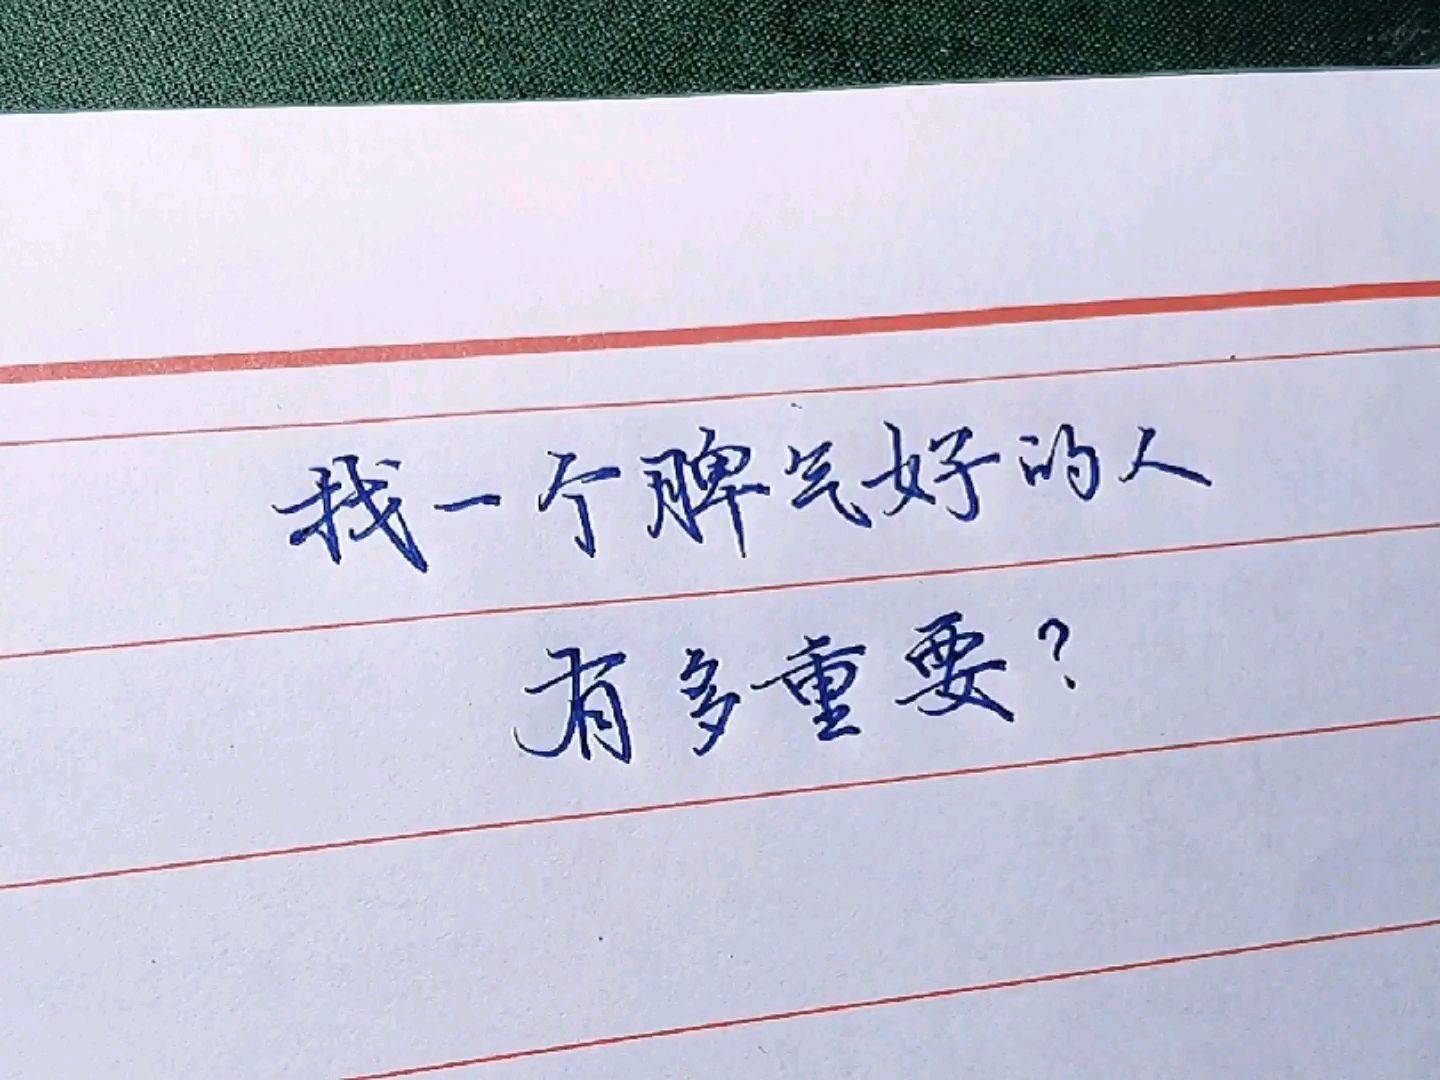 找一个脾气好的人
有多重要？